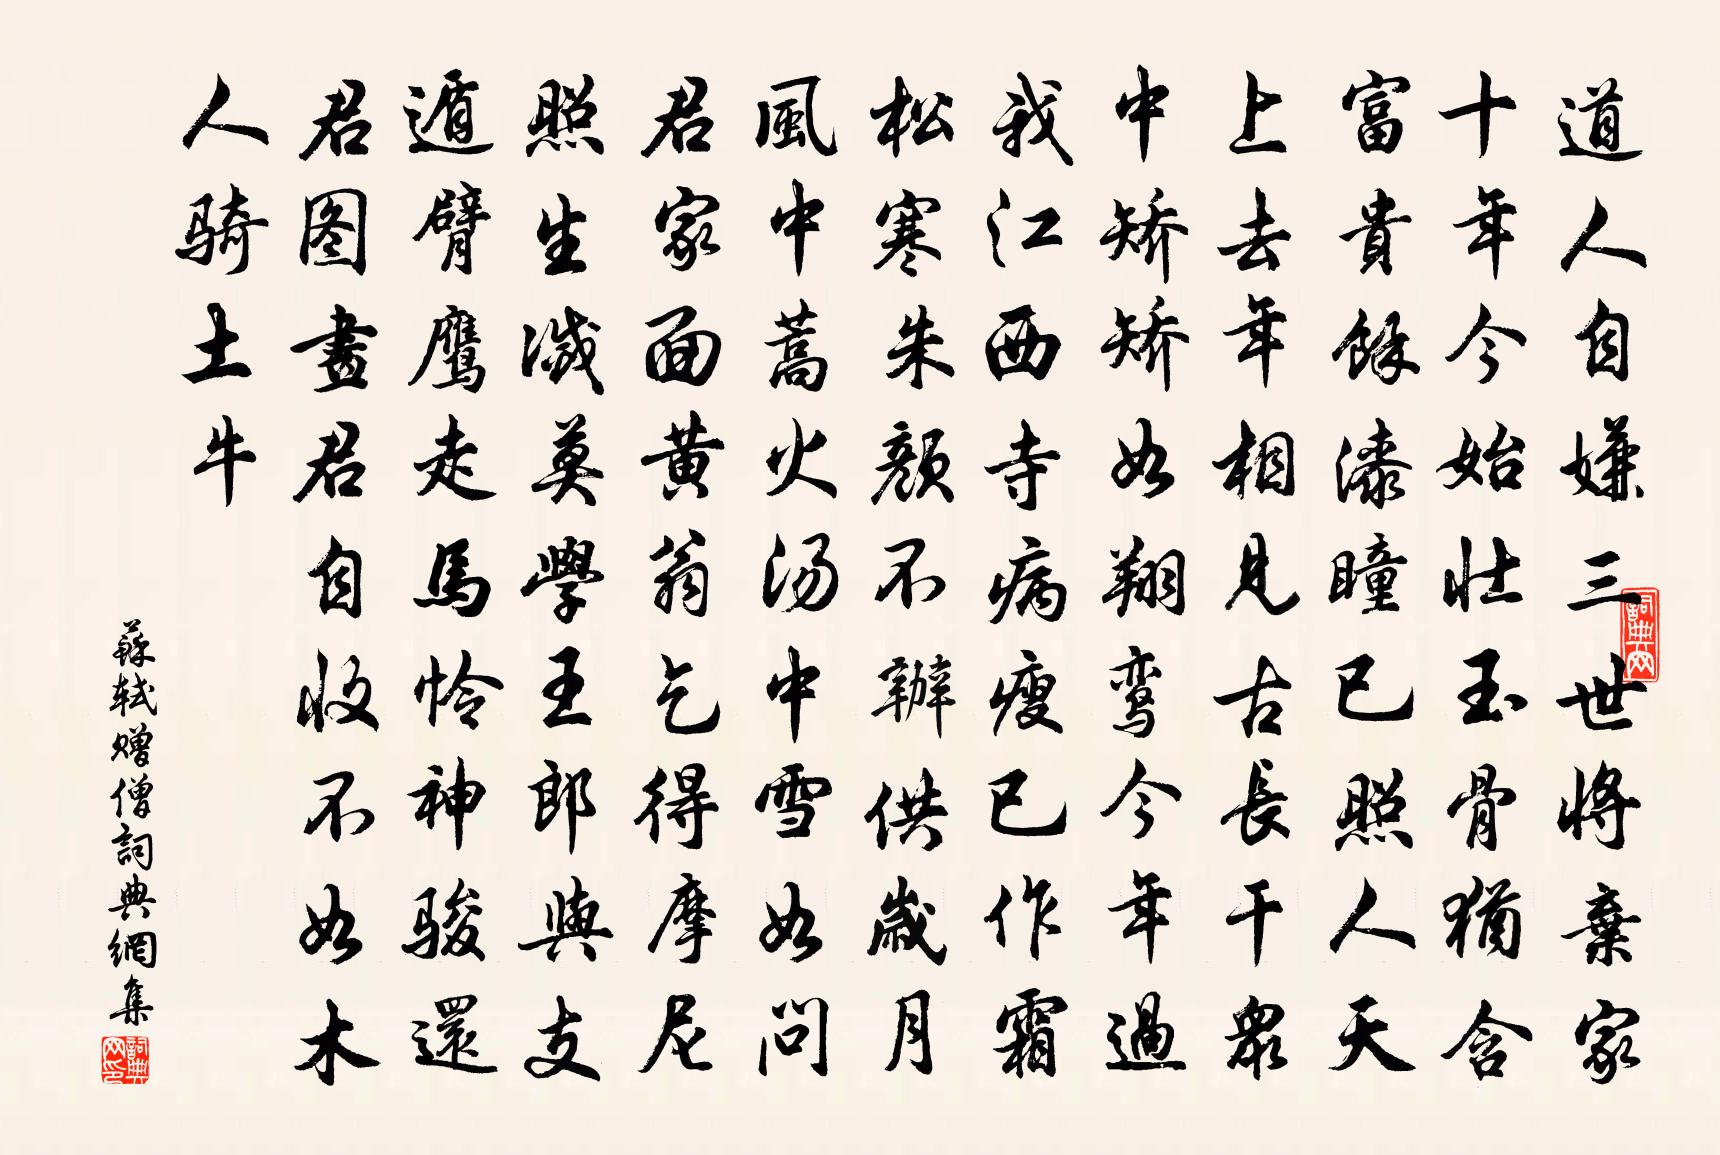 道人自嫌三世將棄家
十年今始壯玉骨猶含
富貴餘漆瞳已照人天
上去年相見古長干衆
中矫矫如翔鸾今年過
我江西寺病瘦已作霜
松寒朱顏不辦供歲月
風中蒿火汤中雪如问
君家面黄翁乞得摩尼
照生滅莫學王郎與支
遁臂鹰走馬怜神骏還
君图畫君自收不如木
人骑土牛
蘇轼赠僧詞典網集
詞典网
詞典网印